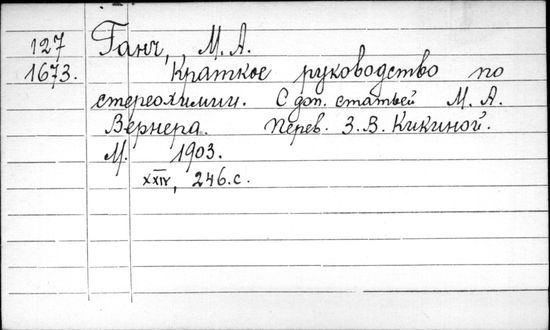 127 Ганч, М. А.
1673. Краткое руководство по
стереохимии. С доп. статьей М. А.
Вернера. Перев. З. В. Кикиной.
М. 1903.
XXIV, 246.с.